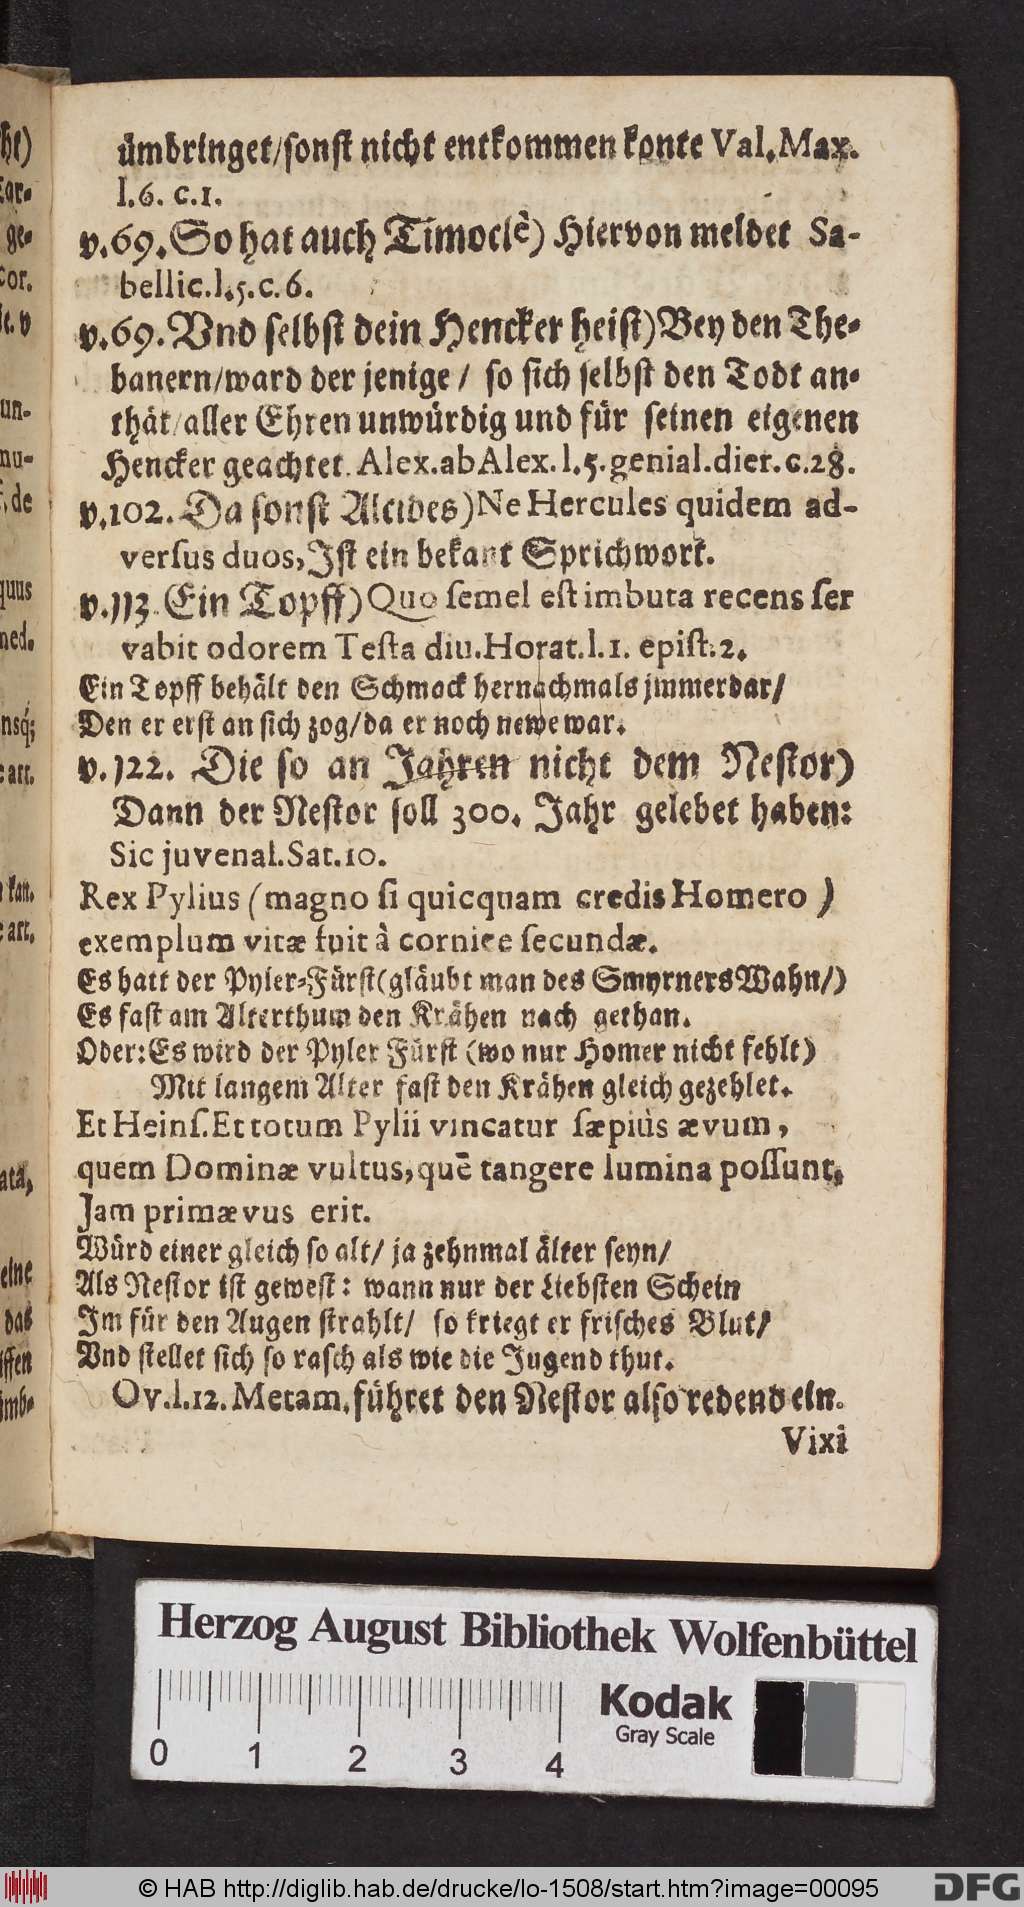 ümbringet/sonst nicht entkommen konte Val. Max.
l. 6. c. 1.
v. 69. So hat auch Timoclè) Hiervon meldet Sa-
bellic. l. 5. c. 6.
v. 69. Vnd selbst dein Hencker heist) Bey den The-
banern/ward der jenige / so sich selbst den Todt an-
thät/aller Ehren unwürdig und für seinen eigenen
Hencker geachtet. Alex. ab Alex. l. 5. genial. dier. c. 28.
v. 102. Da sonst Alcides) Ne Hercules quidem ad-
versus duos, Ist ein bekant Sprichwort.
v. 113. Ein Topff) Quo semel est imbuta recens ser
vabit odorem Testa diu. Horat. l. 1. epist. 2.
Ein Topff behält den Schmack hernachmals jmmerdar/
Den er erst an sich zog/da er noch newe war.
v. 122. Die so an Jahren nicht dem Nestor)
Dann der Nestor soll 300. Jahr gelebet haben:
Sic juvenal. Sat. 10.
Rex Pylius (magno si quicquam credis Homero )
exemplum vitæ fuit à cornice secundæ.
Es hatt der Pyler-Fürst(gläubt man des Smyrners Wahn/)
Es fast am Alterthum den Krähen nach gethan.
Oder: Es wird der Pyler Fürst (wo nur Homer nicht fehlt)
Mit langem Alter fast den Krähen gleich gezehlet.
Et Heins. Et totum Pylii vincatur sæpiùs ævum,
quem Dominæ vultus, quē tangere lumina possunt,
Jam primævus erit.
Würd einer gleich so alt/ ja zehnmal älter seyn/
Als Nestor ist gewest: wann nur der Liebsten Schein
Im für den Augen strahlt/ so kriegt er frisches Blut/
Vnd stellet sich so rasch als wie die Jugend thut.
Ov. l. 12. Metam. führet den Nestor also redend ein.
Vixi
ht)
Car-
ge-
Cor.
un-
nu-
de
quus
med.
nsq;
art.
kan.
art.
ata,
eine
das
iffen
imb-
Herzog August Bibliothek Wolfenbüttel
Kodak
Gray Scale
0 1 2 3 4
© HAB http://diglib.hab.de/drucke/lo-1508/start.htm?image=00095
DFG